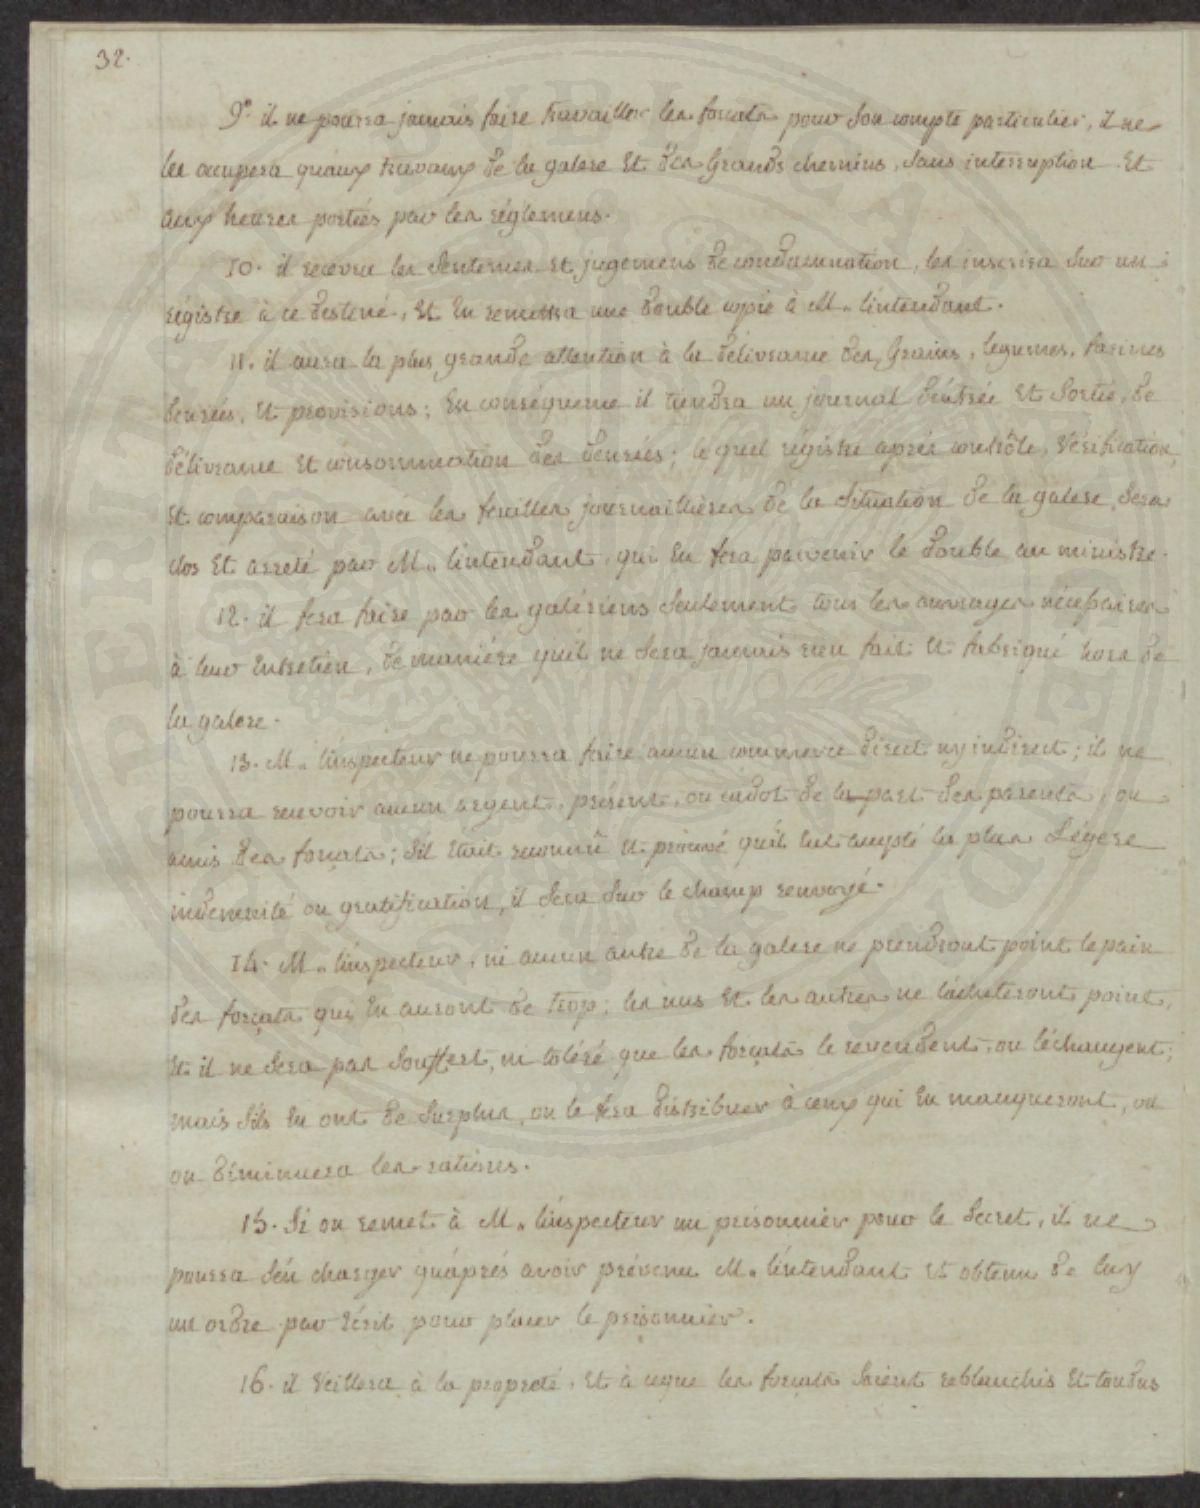 32.
9.° il ne pourra jamais faire travailler les forçats pour son compte particulier, il ne
les occupera qu'aux travaux de la galere et des Grands chemins, sans interruption et
aux heures portées par les réglemens.
10. il recevra les sentences et jugemens de condamnation, les inscrira sur un
régistre à ce destiné, et en remettra une double copie à M. l'intendant.
11. il aura la plus grande attention à la délivrance des Grains, legumes, farines
denrées, et provisions; en conséquence il tiendra un journal d'éntrée et sortie, de
délivrance et consommation des denrées; le quel régistre aprés contrôle, vérification,
et comparaison avec les feuilles journaillières de la situation de la galere, sera
clos et arreté par M. l'intendant, qui en fera parvenir le double au ministre.
12. il fera faire par les galériens seulement tous les ouvrages nécessaires
à leur entretien, de maniére qu'il ne sera jamais rien fait et fabriqué hors de
la galere.
13. M. l'inspecteur ne pourra faire aucun commerce direct ny indirect; il ne
pourra recevoir aucun argent, présent, ou cadot de la part des parents, ou
amis des forçats; s'il était reconnû et prouvé qu'il eut accepté la plus Légére
indemnité ou gratification, il sera sur le champ renvoyé.
14. M. l'inspecteur, ni aucun autre de la galere ne prendront point le pain
des forçats qui en auront de trop; les uns et les autres ne l'achéteront point,
et il ne sera pas souffert, ni toléré que les forçats le revendent, ou l'échangent;
mais s'ils en ont de surplus, on le fera distribuer à ceux qui en manqueront, ou
on diminuera les rations.
15. Si on remet à M. l'inspecteur un prisonnier pour le Secret, il ne
pourra s'en charger qu'aprés avoir prévenu M. l'intendant et obtenu de luy
un ordre par écrit pour placer le prisonnier.
16. il veillera à la propreté, et à ceque les forçats soient reblanchis et tondus